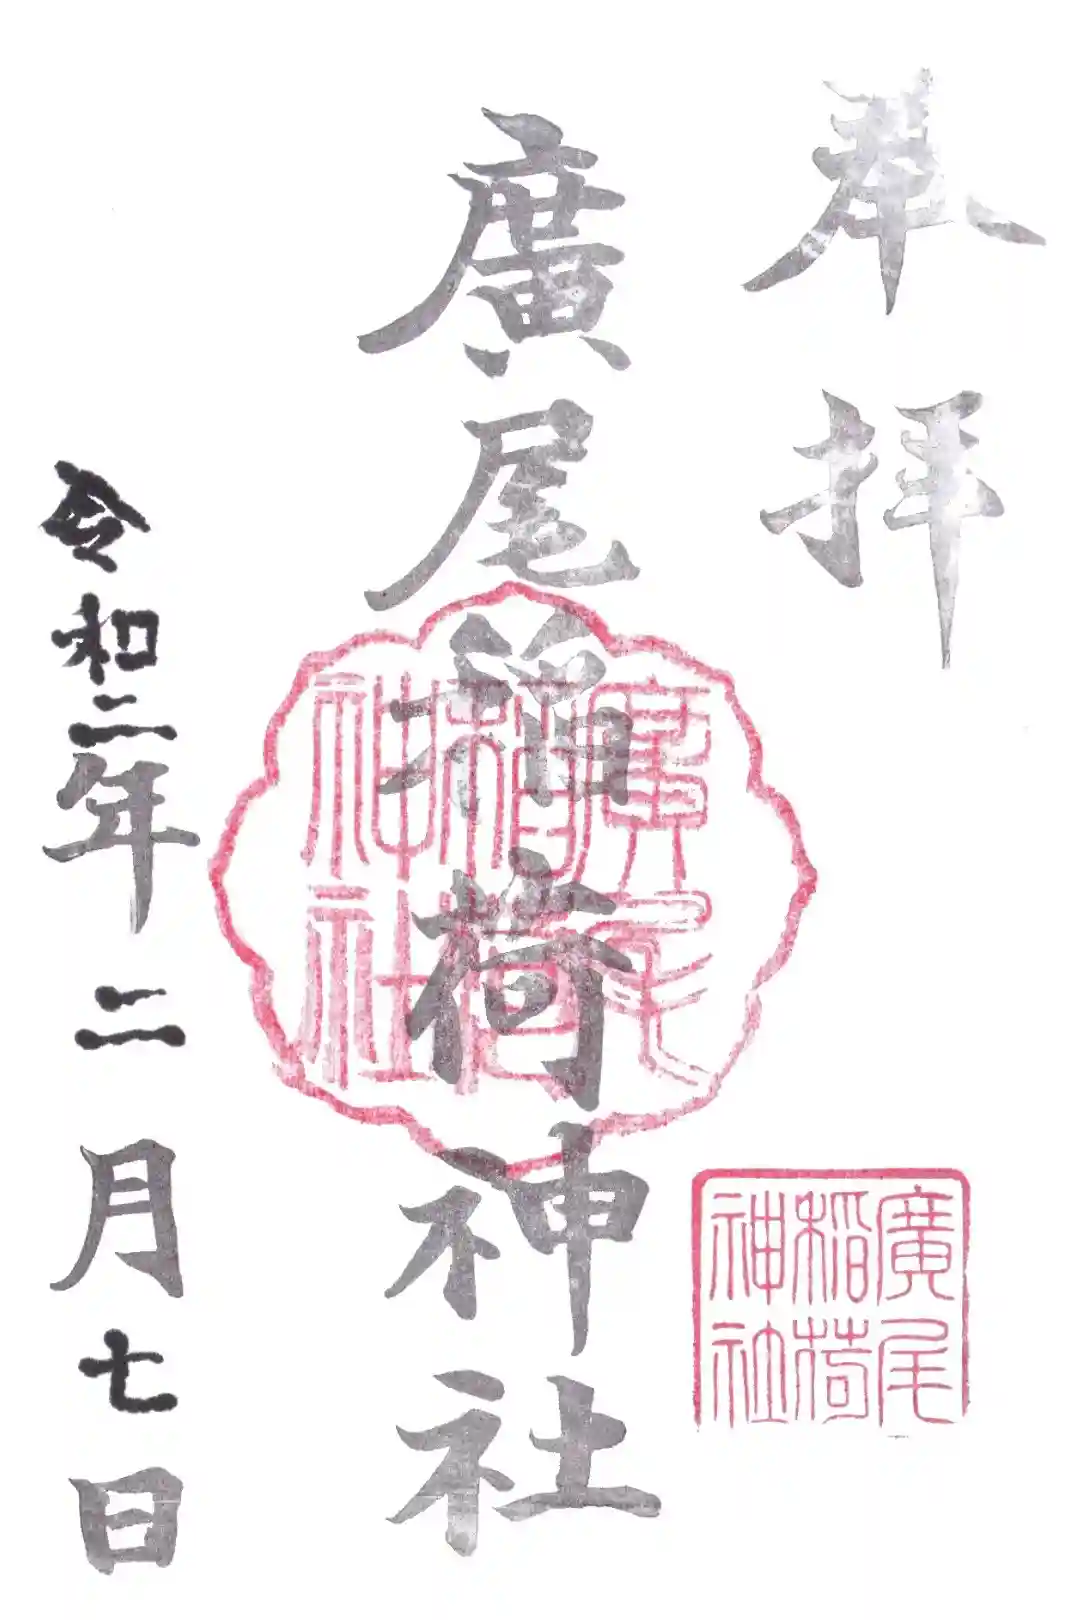 奉拝
廣尾稲荷神社
廣尾稲荷神社
廣尾稲荷神社
令和二年二月七日